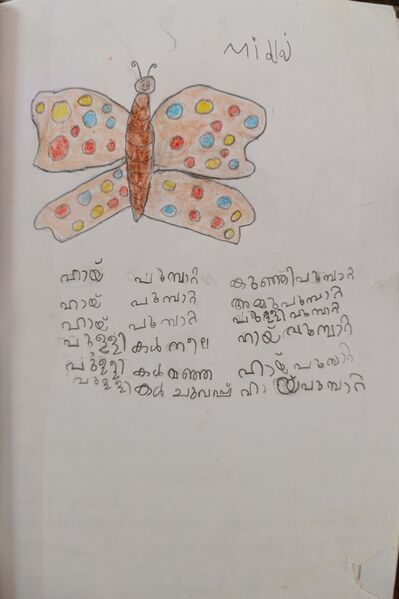 ഹായ് പൂമ്പാറ്റ കുഞ്ഞിപൂമ്പാറ്റ
ഹായ് പൂമ്പാറ്റ അമ്മുപൂമ്പാറ്റ
ഹായ് പൂമ്പാറ്റ പുള്ളിപൂമ്പാറ്റ
പുള്ളികൾ നീല ഹായ് പൂമ്പാറ്റ
പുള്ളികൾ മഞ്ഞ ഹായ് പൂമ്പാറ്റ
പുള്ളികൾ ചുവപ്പ് ഹായ് പൂമ്പാറ്റ